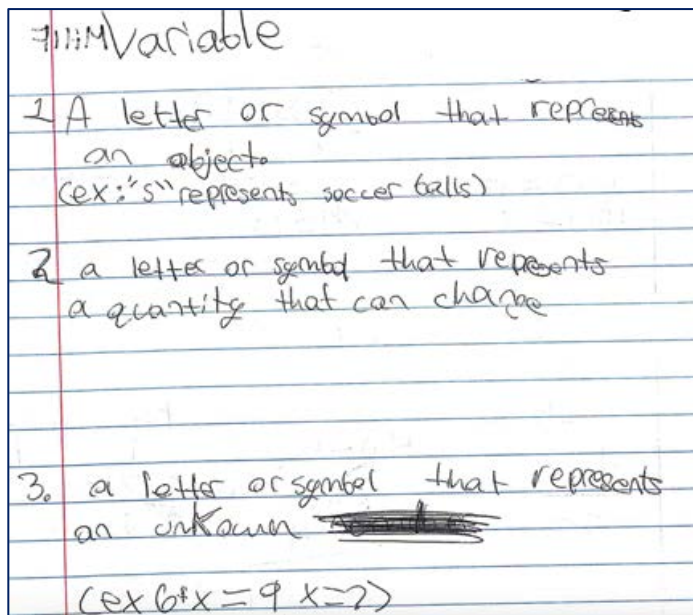 Variable
1 A letter or symbol that represents
an object.
(ex: "s" represents soccer balls)
2 a letter or symbol that represents
a quantity that can change
3. a letter or symbol that represents
an unknown
(ex 6+x=9 x=?)